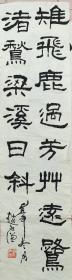 雉飛鹿過芳艸遠鷺
渚鶖梁溪日斜